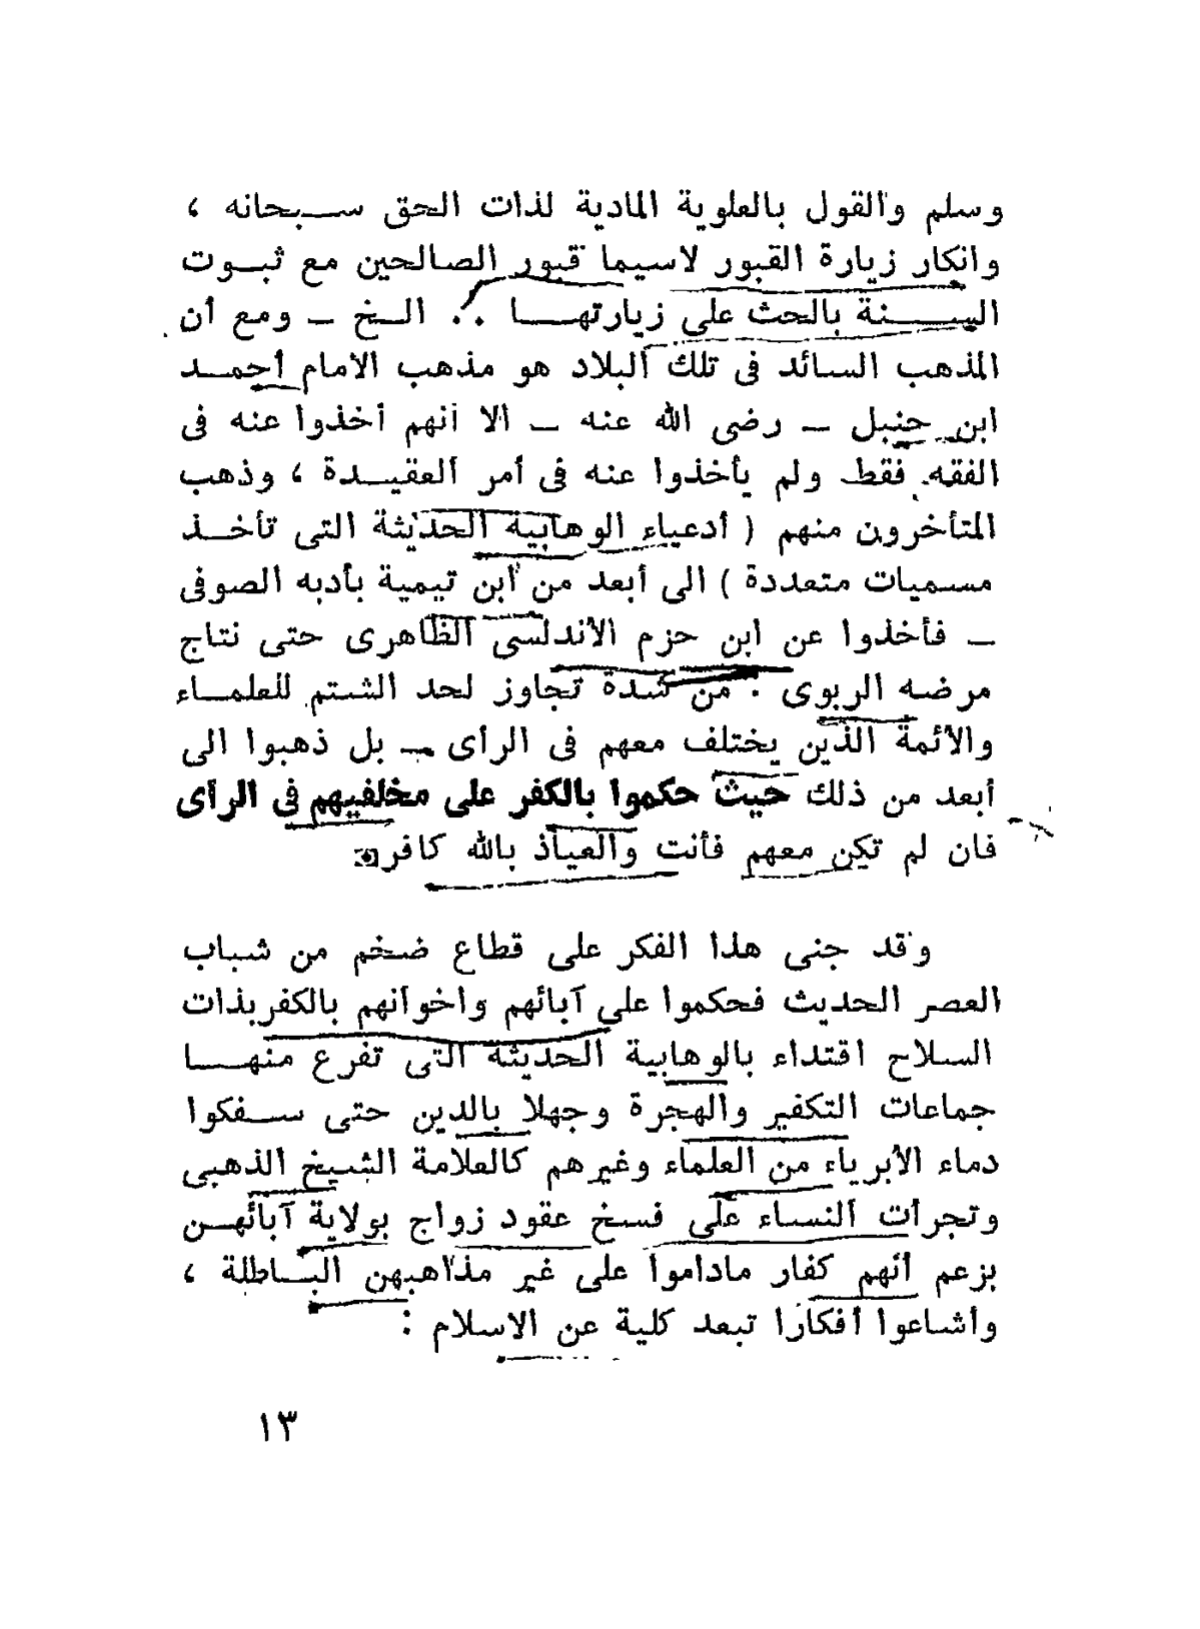 وسلم والقول بالعلوية المادية لذات الحق سبحانه ،
وانكار زيارة القبور لاسيما قبور الصالحين مع ثبوت
السنة بالحث على زيارتها .. الخ – ومع أن
المذهب السائد فى تلك البلاد هو مذهب الامام أحمد
ابن حنبل – رضى الله عنه – الا أنهم أخذوا عنه فى
الفقه فقط ولم يأخذوا عنه فى أمر العقيدة ، وذهب
المتأخرون منهم ( أدعياء الوهابية الحديثة التى تأخذ
مسميات متعددة ) الى أبعد من ابن تيمية بأدبه الصوفى
– فأخذوا عن ابن حزم الاندلسى الظاهرى حتى نتاج
مرضه الربوى . من شدة تجاوز لحد الشتم للعلماء
والأئمة الذين يختلف معهم فى الرأى – بل ذهبوا الى
أبعد من ذلك حيث حكموا بالكفر على مخلفيهم فى الرأى
فان لم تكن معهم فأنت والعياذ بالله كافر
وقد جنى هذا الفكر على قطاع ضخم من شباب
العصر الحديث فحكموا على آبائهم واخوانهم بالكفر بذات
السلاح اقتداء بالوهابية الحديثة التى تفرع منها
جماعات التكفير والهجرة وجهلا بالدين حتى سفكوا
دماء الأبرياء من العلماء وغيرهم كالعلامة الشيخ الذهبى
وتجرأت النساء على فسخ عقود زواج بولاية آبائهن
بزعم أنهم كفار ماداموا على غير مذاهبهن الباطلة ،
وأشاعوا أفكارا تبعد كلية عن الاسلام :
١٣